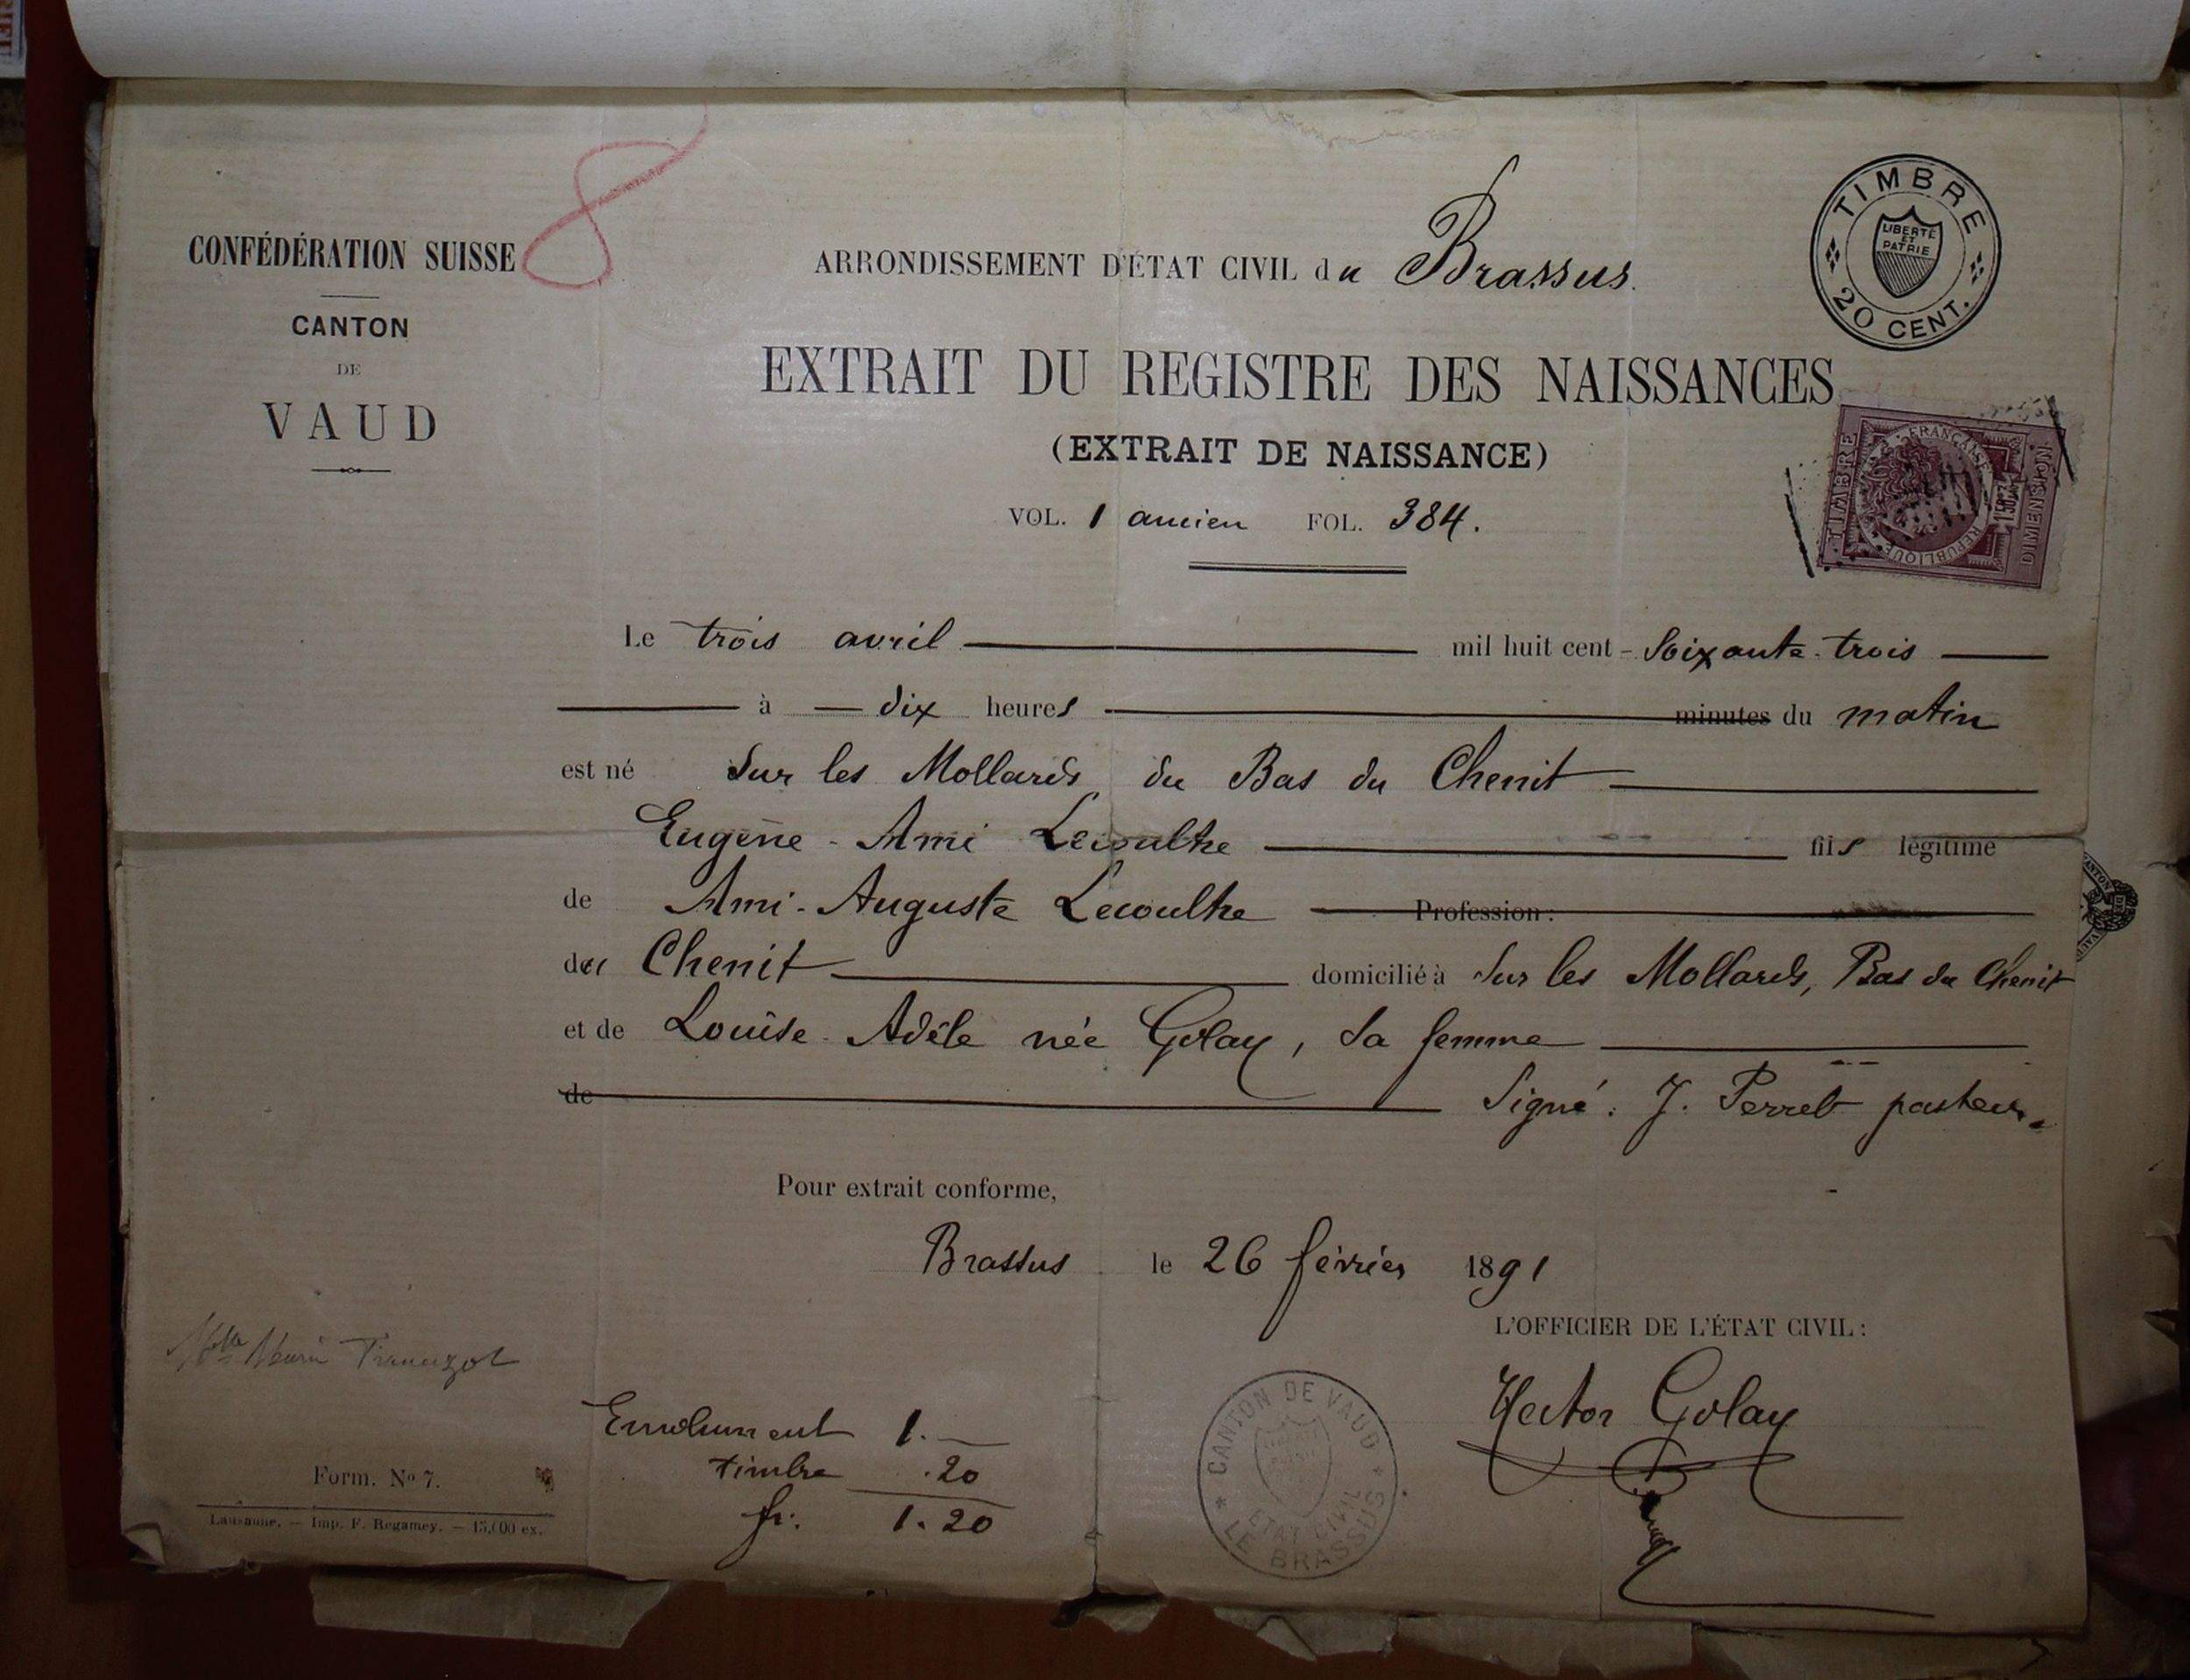 8
CONFÉDÉRATION SUISSE
CANTON
DE
VAUD
ARRONDISSEMENT D'ÉTAT CIVIL du Brassus.
TIMBRE
LIBERTÉ
ET
PATRIE
20 CENT.
EXTRAIT DU REGISTRE DES NAISSANCES
(EXTRAIT DE NAISSANCE)
TIMBRE
RÉPUBLIQUE FRANÇAISE
DIMENSION
VOL. 1 ancien FOL. 384.
Le trois avril mil huit cent - soixante-trois
à dix heures minutes du matin
est né sur les Mollards du Bas du Chenit
Eugène - Ami Lecoultre fils légitime
de Ami-Auguste Lecoultre Profession:
du Chenit domicilié à sur les Mollards, Bas du Chenit
et de Louise-Adèle née Golay, sa femme
de Signé: J. Perret pasteur.
Pour extrait conforme,
Brassus le 26 février 1891
L'OFFICIER DE L'ÉTAT CIVIL:
Hector Golay
CANTON DE VAUD
ETAT CIVIL
LE BRASSUS
Emolument 1.—
timbre .20
fr. 1.20
Form. No 7.
Lausanne. — Imp. F. Regamey. — 15,000 ex.